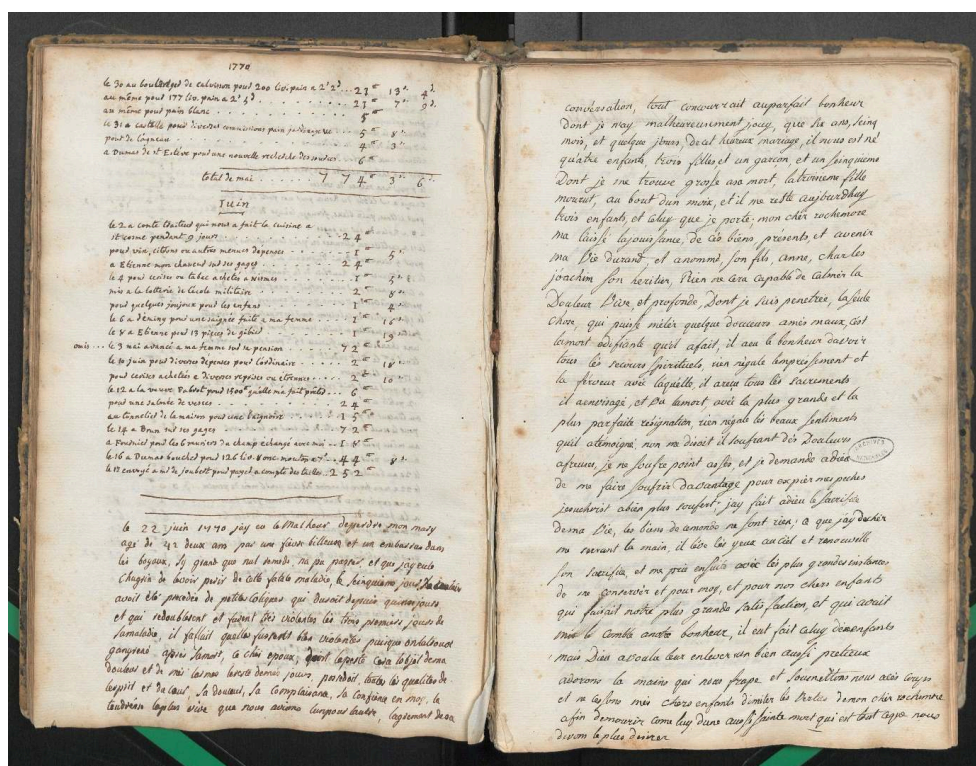 1770
le 30 au boulanger de calvisson pour 200 liv. pain a 2ˢ 2ᵈ .. 21ᵗᵗ 13ˢ. 4ᵈ.
au même pour 177 liv. pain a 2ˢ 5ᵈ . . . . 21ᵗᵗ 7ˢ 9ᵈ.
au même pour pain blanc . . . . 5ᵗᵗ
le 31 a castille pour diverses commissions pain 5ᵗᵗ 8ˢ
pour de l'agneau . . . . 4ᵗᵗ 3ˢ
a Dumas de St Esteve pour une nouvelle recherche des 6ᵗᵗ
total de mai . . . . 774ᵗᵗ 3ˢ. 6ᵈ.
Juin
le 2 a comte traiteur qui nous a fait la cuisine a
St cosme pendant 9 jours . . . . 24ᵗᵗ
pour vin, citrons ou autres menues depenses . . 1ᵗᵗ 5ˢ
a Etienne mon chasseur sur ses gages . . . 24ᵗᵗ
le 4 pour cerises ou tabac achetés a nismes . . . 1ᵗᵗ
mis a la lotterie de l'ecole militaire . . . 2ᵗᵗ 8ˢ
pour quelques joujoux pour les enfans . . . 1ᵗᵗ 4ˢ
le 6 a déming pour une saignée faite a ma femme . . 1ᵗᵗ 16ˢ
le 8 a Etienne pour 13 pieces de gibier . . . 1ᵗᵗ 19ˢ
omis ... le 3 mai avancé a ma femme sur sa pension . . 72ᵗᵗ
le 10 juin pour diverses depenses pour l'ordinaire . . . 2ᵗᵗ 18ˢ
pour cerises achetées a diverses reprises ou etrennes . . 2ᵗᵗ 10ˢ
le 12 a la veuve pour 1500ᵗᵗ qu'elle m'a fait preter . . . 6ᵗᵗ
pour une salmée de vesces . . . 24ᵗᵗ
au tonnelier de la maison pour une baignoire . . . 15ᵗᵗ
le 14 a Brun sur ses gages . . . 72ᵗᵗ
a Fournier pour les 6 muriers du champ échangé avec moi . . 18ᵗᵗ
le 16 a Dumas boucher pour 126 liv. 8 onc mouton a 7ˢ . . 44ᵗᵗ 8ˢ.
le 17 envoyé a mr de joubert pour payer a compte des tailles . . 252ᵗᵗ
le 22 juin 1770 jay eu le Malheur deperdre mon mary
agé de 42 deux ans par une fievre billeuse et un embarras dans
les boyaux, sy grand que nul remede na pu passer, et que jay eu le
chagrin de le voir perir de cette fatale maladie, le seinquieme jour, sa maladie
avoit été precedée de petites coliques qui duroit depuis quinze jours
et qui redoublerent et furent tres violentes les trois premiers jours de
samaladie, il falloit quelles fussent bien violentes puisque on la trouvé
gangrené, apres samort, ce cher epoux, dont la perte sera l'objet dema
douleur et de mes larmes le reste demes jours, possedoit, toutes les qualités de
lesprit et du cœur, sa douceur, sa complaisance, sa confiance en moy, la
tendresse la plus vive que nous avions lun pour lautre, lagrement de sa
conversation, tout concourrait auparfait bonheur
Dont je n'ay malheureusement jouy, que six ans, seinq
mois, et quelque jours, De cet heureux mariage, il nous est né
quatre enfants, trois filles et un garçon, et un seinquieme
Dont je me trouve grosse asa mort, latroisieme fille
mourut, au bout dun moix, et il ne reste aujourdhuy
trois enfants, et celuy que je porte; mon cher rochemore
ma laissé lajouissance, de ces biens présents, et avenir
ma Vie durant, et anommé, son fils, anne, charles
joachim son heritier, Rien ne sera capable de calmer la
Douleur Vive, et profonde, Dont je suis penetrée, la seule
chose, qui puisse mêler quelque douceurs amès maux, cest
lamort édifiante quil afait, il aeu le bonheur davoir
tous les secours spirituels, rien negale lempressement et
la ferveur avec laquelle, il areçu tous les sacrements
il aenvisagé, et Vu lamort avec la plus grande et la
plus parfaite résignation, rien négale les beaux sentiments
quil atemoigné, nun me disoit il soufrant des Douleurs
afreuses, je ne soufre point assés, et je demande adieu
de me faire souffrir davantage pour expier mes pechés
jesuchrist abien plus soufert; jay fait adieu le sacrifice
dema Vie, les biens de cemonde ne sont rien; a que jay decher
me serrant la main, il leve les yeux au Ciel et renouvelle
son sacrifice, et me prie ensuite avec les plus grandes instances
de me conserver et pour moy, et pour nos chers enfants
qui faisait notre plus grande satisfaction, et qui avait
mis le comble anotre bonheur, il eut fait celuy demes enfants
mais Dieu avoulu leur enlever un bien aussi pretieux
adorons la mains qui nous frape et soumettons nous aces coups
et ne cessons mes chers enfants dimiter les vertus demon cher rochemore
afin demourir come luy dune aussi sainte mort qui est tout ceque nous
devons le plus desirer
ARCHIVES